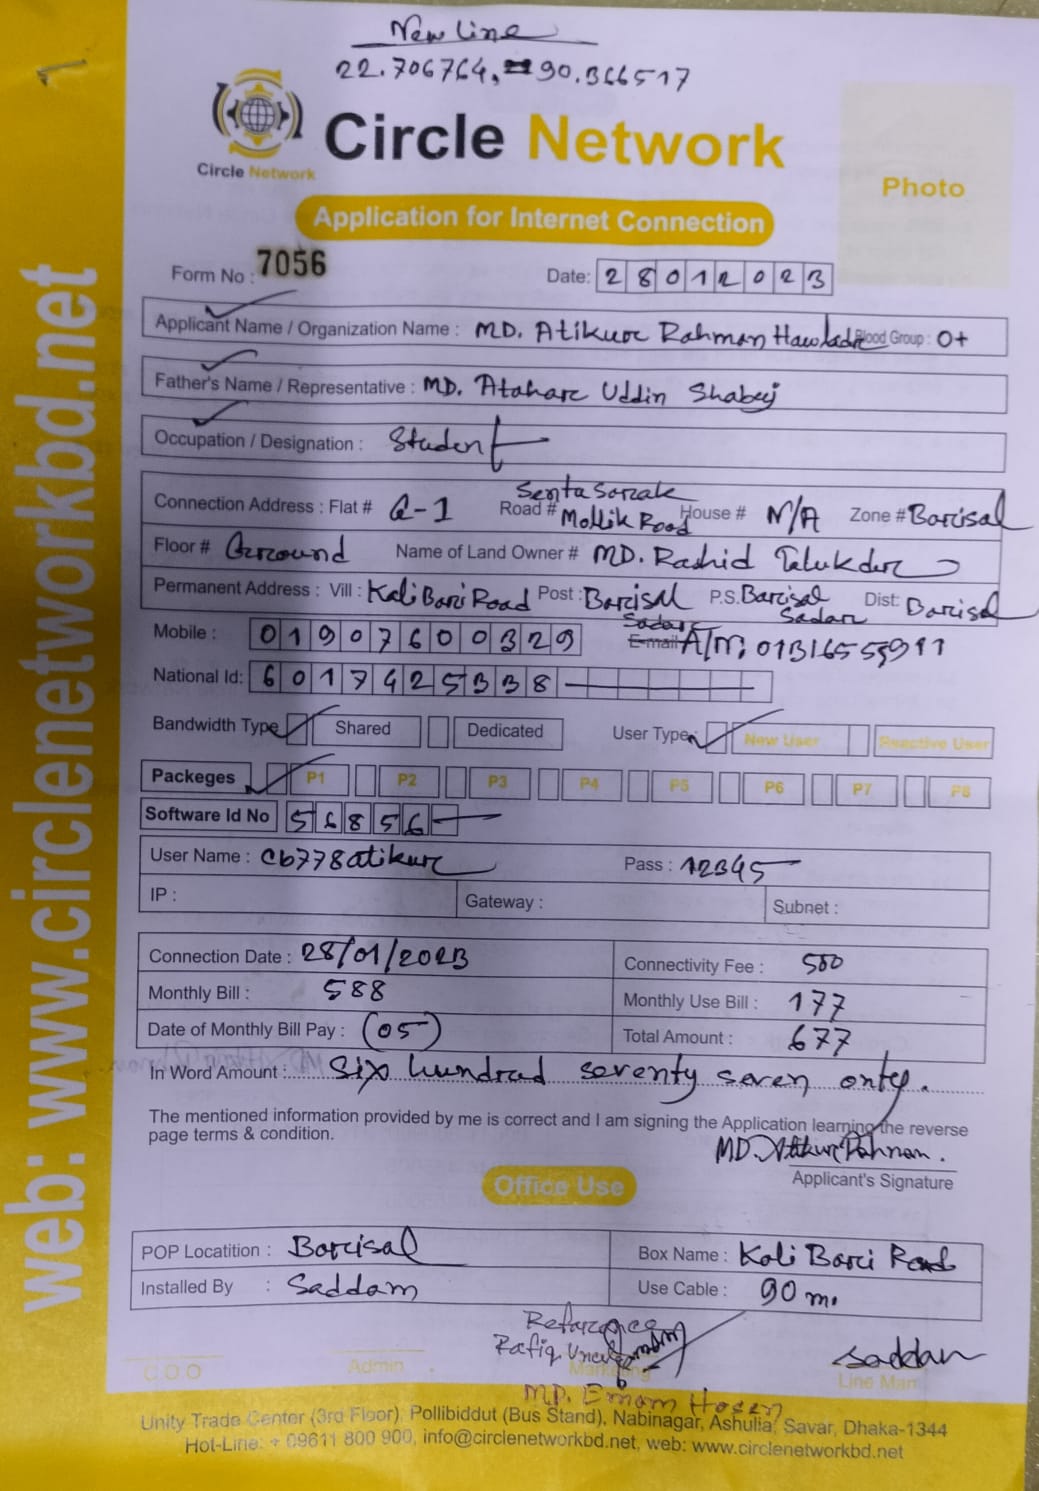 New Line
22.706764, 90.366517
Circle Network
Circle Network
Photo
Application for Internet Connection
Form No : 7056
Date: 28012023
Applicant Name / Organization Name : MD. Atikur Rahman Hawladr Blood Group : O+
Father's Name / Representative : MD. Atahar Uddin
Occupation / Designation : Student
Connection Address : Flat # G-1 Road # Mollik Road House # N/A Zone # Barisal
Floor # Ground Name of Land Owner # MD. Rashid Talukder
Permanent Address : Vill : Kali Bari Road Post : Barisal Sadar P.S. Barisal Sadar Dist: Barisal
Mobile : 01907600329 E-mail A/N: 01316555911
National Id: 6017425338
Bandwidth Type Shared Dedicated User Type: New User Reactive User
Packeges P1 P2 P3 P4 P5 P6 P7 P8
Software Id No 56856
User Name : cb778atikur Pass : 12345
IP : Gateway : Subnet :
Connection Date : 28/01/2023 Connectivity Fee : 500
Monthly Bill : 588 Monthly Use Bill : 177
Date of Monthly Bill Pay : (05) Total Amount : 677
In Word Amount : Six hundrad seventy seven only.
The mentioned information provided by me is correct and I am signing the Application learning the reverse
page terms & condition.
MD. Atikur Rahman.
Applicant's Signature
Office Use
POP Locatition : Barisal Box Name : Kali Bari Road
Installed By : Saddam Use Cable : 90 m.
Refarance
Rafiq
saddam
C.O.O Admin Marketing Line Man
MD. Emam Hosen
Unity Trade Center (3rd Floor), Pollibiddut (Bus Stand), Nabinagar, Ashulia, Savar, Dhaka-1344
Hot-Line: + 09611 800 900, info@circlenetworkbd.net, web: www.circlenetworkbd.net
web: www.circlenetworkbd.net